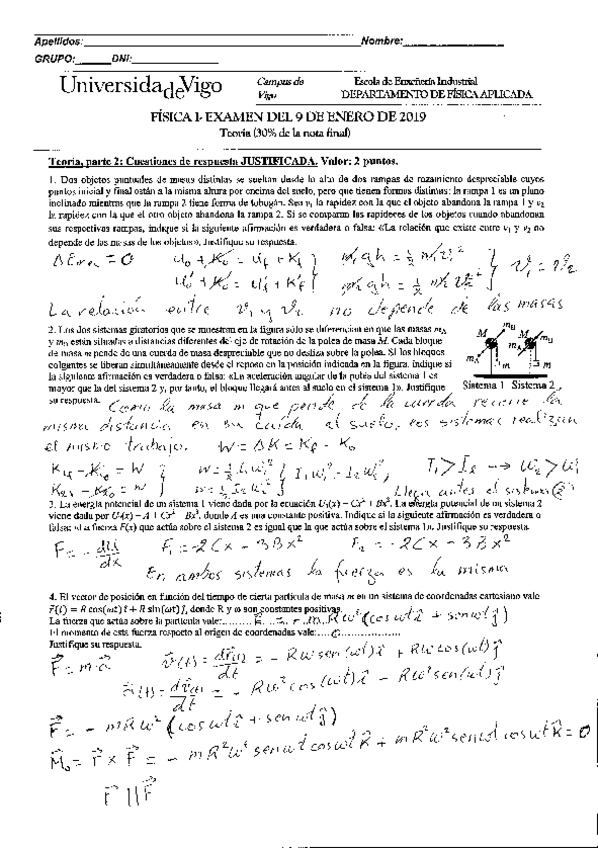 Apellidos: Nombre:
GRUPO: DNI:
Universidade de Vigo
Campus de Vigo
Escola de Enxeñería Industrial
DEPARTAMENTO DE FÍSICA APLICADA
FÍSICA I- EXAMEN DEL 9 DE ENERO DE 2019
Teoría (30% de la nota final)
Teoría, parte 2: Cuestiones de respuesta JUSTIFICADA. Valor: 2 puntos.
1. Dos objetos puntuales de masas distintas se sueltan desde lo alto de dos rampas de rozamiento despreciable cuyos
puntos inicial y final están a la misma altura por encima del suelo, pero que tienen formas distintas: la rampa 1 es un plano
inclinado mientras que la rampa 2 tiene forma de tobogán. Sea v₁ la rapidez con la que el objeto abandona la rampa 1 y v₂
la rapidez con la que el otro objeto abandona la rampa 2. Si se comparan las rapideces de los objetos cuando abandonan
sus respectivas rampas, indique si la siguiente afirmación es verdadera o falsa: «La relación que existe entre v₁ y v₂ no
depende de las masas de los objetos». Justifique su respuesta.
ΔE = 0 U₀ + K₀ = Uf + Kf mgh = ½ m v₁² v₁ = v₂
U₀' + K₀' = Uf' + Kf' m'gh = ½ m' v₂²
La relación entre v₁ y v₂ no depende de las masas
2. Los dos sistemas giratorios que se muestran en la figura sólo se diferencian en que las masas mA
y mB están situadas a distancias diferentes del eje de rotación de la polea de masa M. Cada bloque
de masa m pende de una cuerda de masa despreciable que no desliza sobre la polea. Si los bloques
colgantes se liberan simultáneamente desde el reposo en la posición indicada en la figura, indique si
la siguiente afirmación es verdadera o falsa: «La aceleración angular de la polea del sistema 1 es
mayor que la del sistema 2 y, por tanto, el bloque llegará antes al suelo en el sistema 1». Justifique
su respuesta.
M mB mA m M mB mA m
Sistema 1 Sistema 2
Como la masa m que pende de la cuerda recorre la
misma distancia en su caída al suelo, los sistemas realizan
el mismo trabajo. W = ΔK = Kf - K₀
Kf₁ - K₀₁ = W W = ½ I₁ω₁² I₁ω₁² = I₂ω₂² I₁ > I₂ → ω₂ > ω₁
Kf₂ - K₀₂ = W W = ½ I₂ω₂² Llega antes el sistema 2
3. La energía potencial de un sistema 1 viene dada por la ecuación U₁(x) = Cx² + Bx³. La energía potencial de un sistema 2
viene dada por U₂(x) = A + Cx² + Bx³, donde A es una constante positiva. Indique si la siguiente afirmación es verdadera o
falsa: «La fuerza F(x) que actúa sobre el sistema 2 es igual que la que actúa sobre el sistema 1». Justifique su respuesta.
F = - dU/dx F₁ = -2Cx - 3Bx² F₂ = -2Cx - 3Bx²
En ambos sistemas la fuerza es la misma
4. El vector de posición en función del tiempo de cierta partícula de masa m en un sistema de coordenadas cartesiano vale
r(t) = R cos(ωt) î + R sin(ωt) ĵ, donde R y ω son constantes positivas.
La fuerza que actúa sobre la partícula vale: Rω² (cos ωt î + sen ωt ĵ)
El momento de esta fuerza respecto al origen de coordenadas vale:
Justifique su respuesta.
F = m·a v(t) = dr(t)/dt = - Rω sen(ωt) î + Rω cos(ωt) ĵ
a(t) = dv(t)/dt = - Rω² cos(ωt) î - Rω² sen(ωt) ĵ
F = - mRω² (cos ωt î + sen ωt ĵ)
M₀ = r × F = - mR²ω² sen ωt cos ωt k̂ + mR²ω² sen ωt cos ωt k̂ = 0
r || F